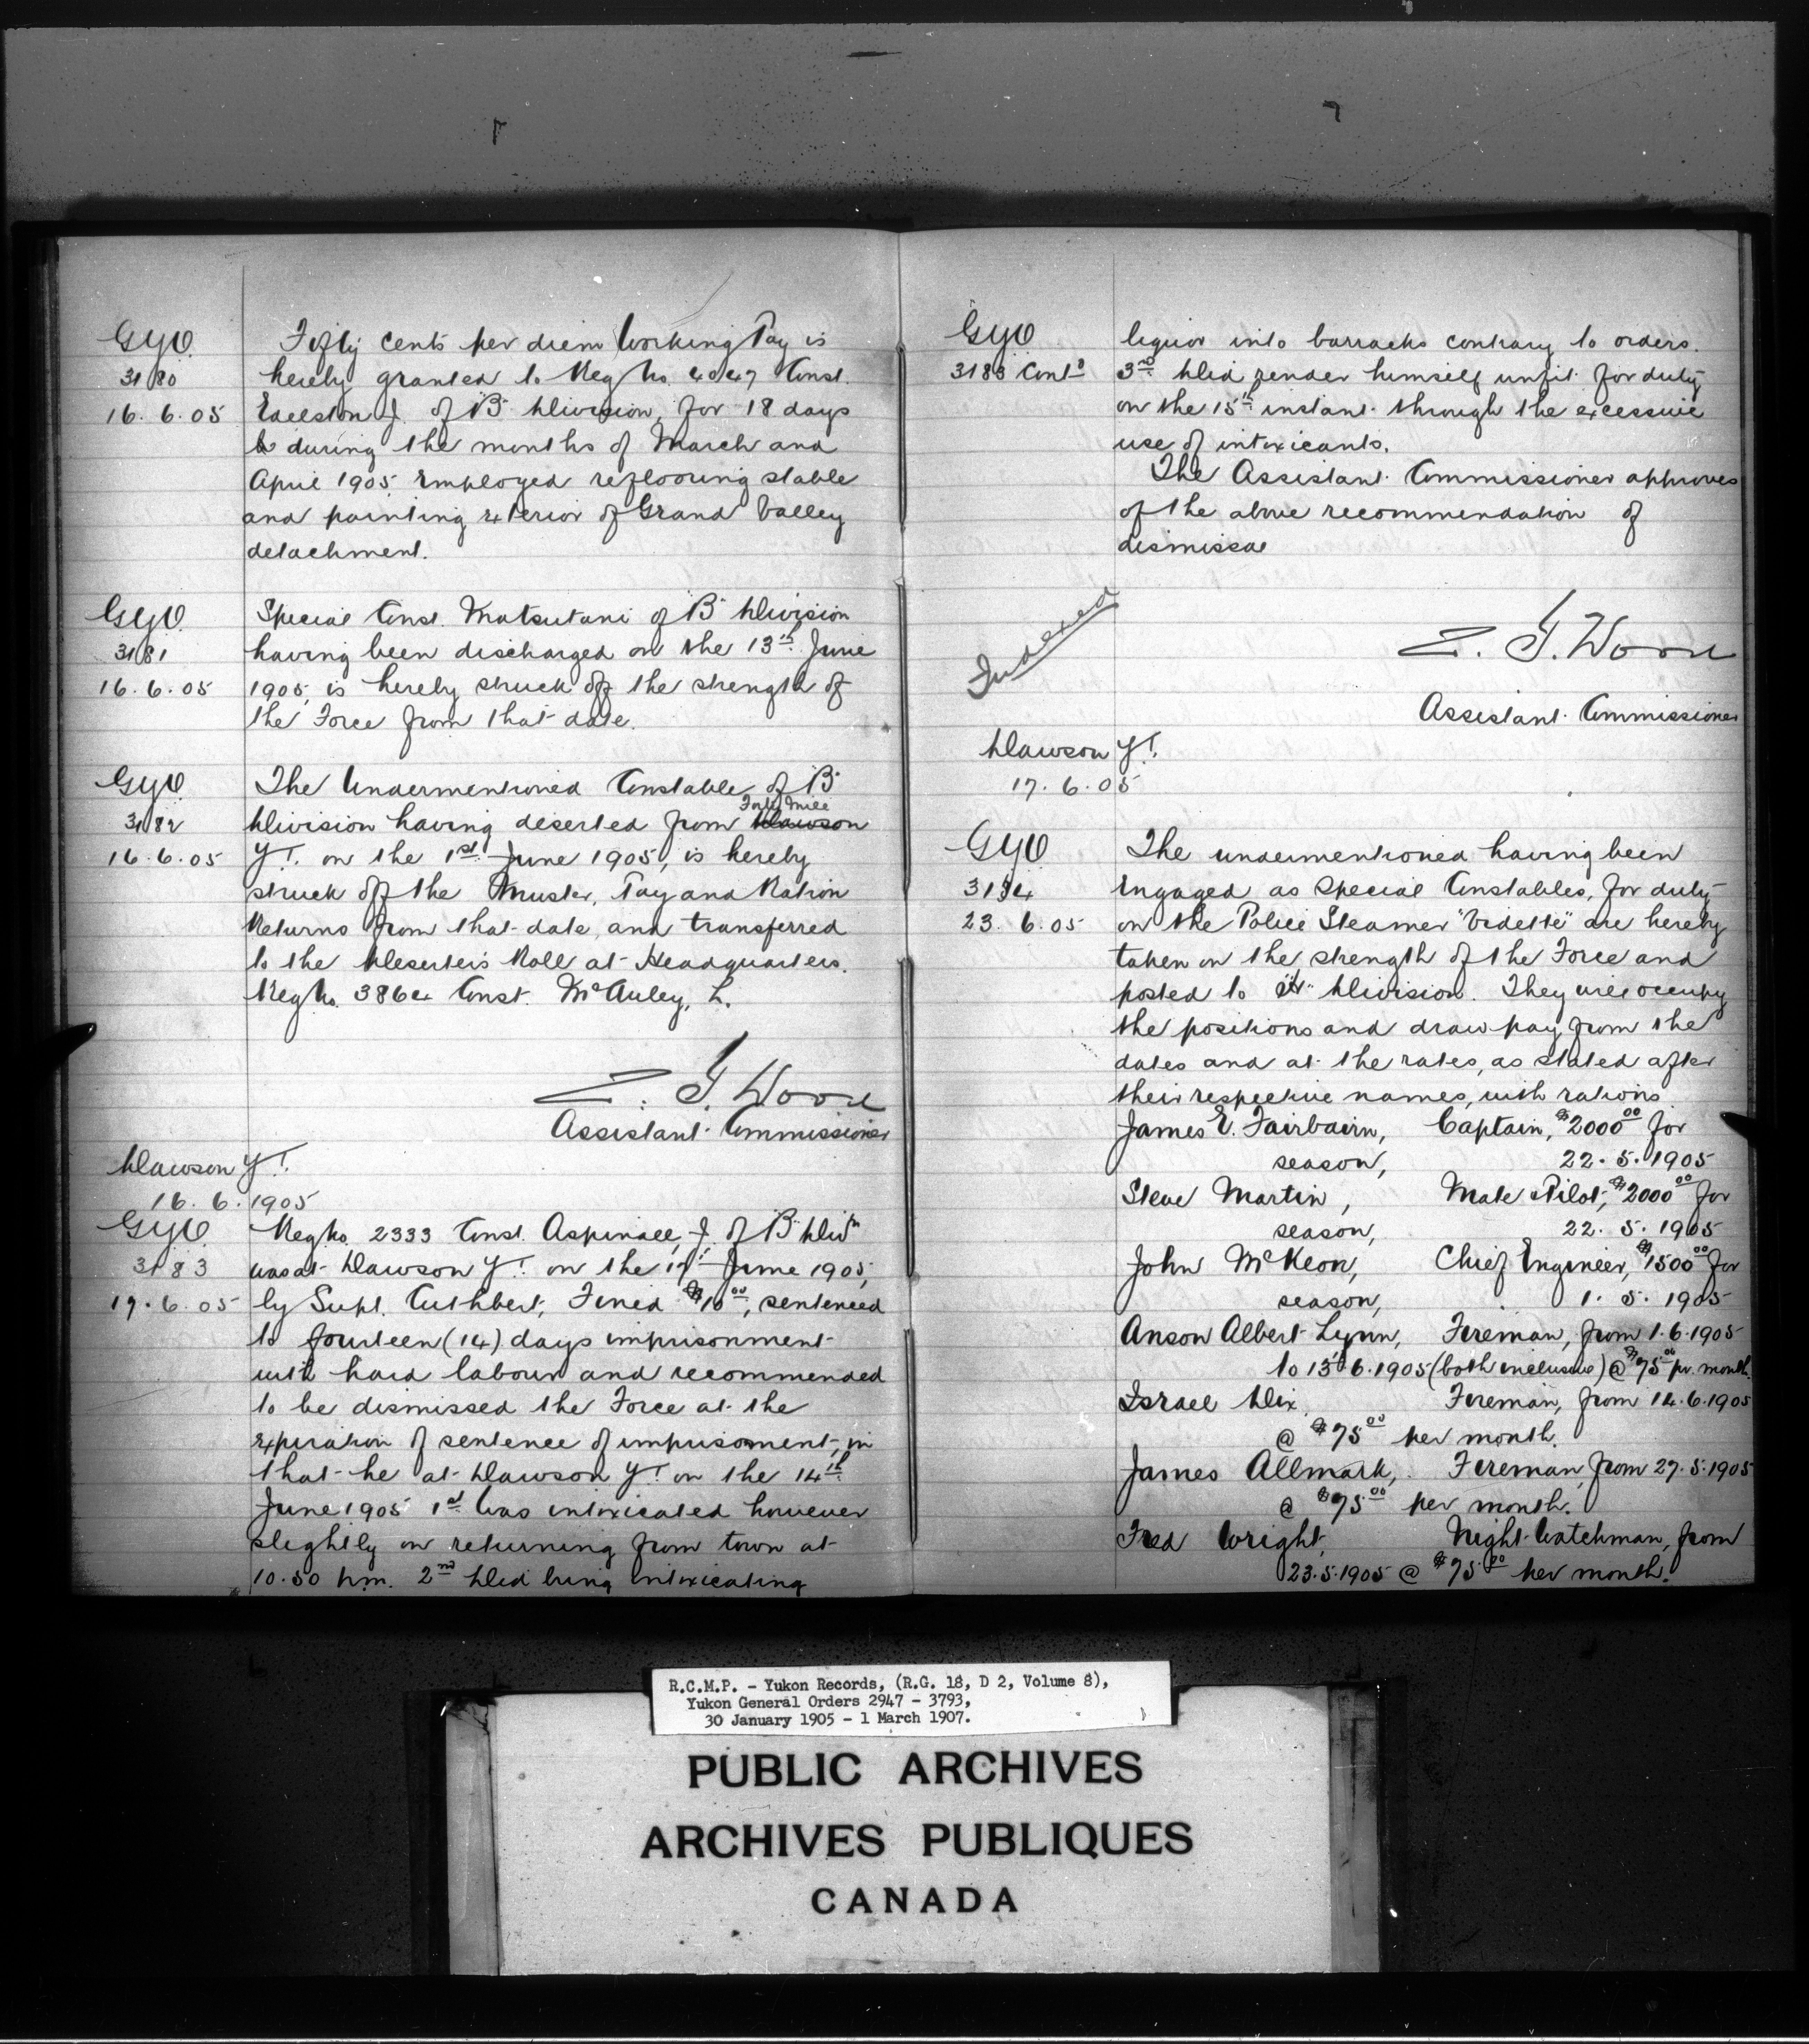 GYO
3180
16.6.05
Fifty cents per diem Working Pay is
hereby granted to Reg No. 4047 Const.
of "B" Division, for 18 days
during the months of March and
April 1905 employed reflooring stable
and painting exterior of Grand Valley
detachment.
GYO
3181
16.6.05
Special Const. Matsutani of "B" Division
having been discharged on the 13th June
1905, is hereby struck off the strength of
the Force from that date.
GYO
3182
16.6.05
The Undermentioned Constable of "B"
Forty Mile
Division having deserted from Dawson
Y.T. on the 1st June 1905, is hereby
struck off the Muster, Pay and Ration
Returns from that date, and transferred
to the Deserters Roll at Headquarters.
Reg No. 3864 Const. McAuley, L.
Z. T. Wood
Assistant Commissioner
Dawson Y.T.
16.6.1905
GYO
3183
17.6.05
Reg No. 2333 Const. Aspinall, J. of "B" Divn
was at Dawson Y.T. on the June 1905,
by Supt. Cuthbert, Fined $10.00, sentenced
to fourteen (14) days imprisonment
with hard labour and recommended
to be dismissed the Force at the
expiration of sentence of imprisonment, in
that he at Dawson Y.T. on the 14th
June 1905 1st Was intoxicated however
slightly on returning from town at
10.50 p.m. 2nd Did bring intoxicating
GYO
3183 Contd
liquor into barracks contrary to orders.
3rd Did render himself unfit for duty
on the 15th instant through the excessive
use of intoxicants.
The Assistant Commissioner approves
of the above recommendation of
dismissal
Indexed
Z. T. Wood
Assistant Commissioner
Dawson Y.T.
17.6.05
GYO
3184
23.6.05
The undermentioned having been
engaged as Special Constables, for duty
on the Police Steamer "Vidette" are hereby
taken on the strength of the Force and
posted to Division. They will occupy
the positions and draw pay from the
dates and at the rates, as stated after
their respective names, with rations
James E. Fairbairn, Captain, $2000.00 for
season, 22.5.1905
Steve Martin, Mate & Pilot, $2000.00 for
season, 22.5.1905
John McKeon, Chief Engineer, $1500.00 for
season, 1.5.1905
Anson Albert Lynn, Fireman, from 1.6.1905
to 13.6.1905 (both inclusive) @ $75.00 pr. month.
Israel Dix, Fireman, from 14.6.1905
@ $75.00 per month.
James Allmark, Fireman, from 27.5.1905
@ $75.00 per month.
Fred Wright, Night Watchman, from
23.5.1905 @ $75.00 per month.
R.C.M.P. - Yukon Records, (R.G. 18, D 2, Volume 8),
Yukon General Orders 2947 - 3793,
30 January 1905 - 1 March 1907.
PUBLIC ARCHIVES
ARCHIVES PUBLIQUES
CANADA